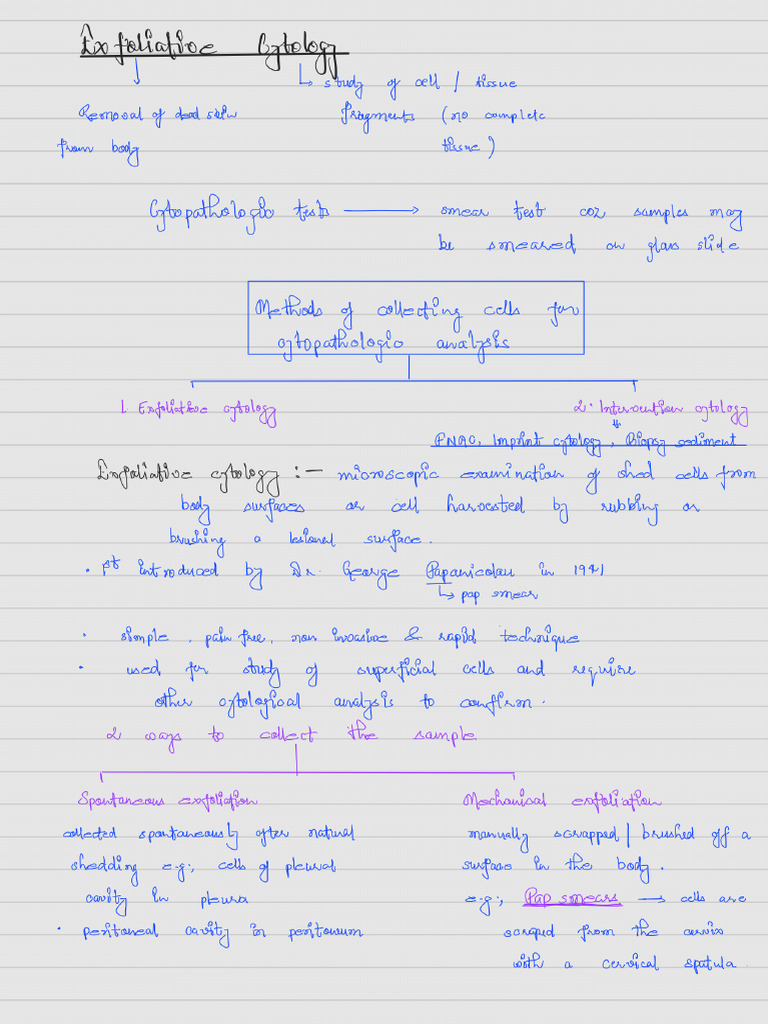 Exfoliative Cytology
study of cell / tissue
Removal of dead skin fragments (no complete
from body tissue)
Cytopathologic tests → smear test coz samples may
be smeared on glass slide
Methods of collecting cells for
cytopathologic analysis
1. Exfoliative cytology 2. Intervention cytology
FNAC, Imprint cytology, Biopsy sediment
Exfoliative cytology :- microscopic examination of shed cells from
body surfaces or cell harvested by rubbing or
brushing a lesional surface.
• 1st introduced by Dr. George Papanicolau in 1941
pap smear
• simple, pain free, non invasive & rapid technique
• used for study of superficial cells and require
other cytological analysis to confirm.
2 ways to collect the sample
Spontaneous exfoliation Mechanical exfoliation
collected spontaneously after natural manually scrapped / brushed off a
shedding e.g:, cells of pleural surface in the body.
cavity in pleura e.g:, Pap smears → cells are
• peritoneal cavity in peritoneum scraped from the cervix
with a cervical spatula.